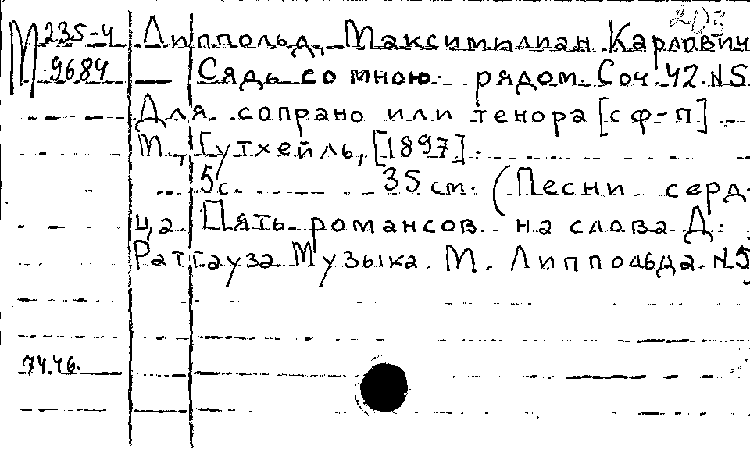 М 235-4 Липпольд, Максимилиан Карлович
9684 — Сядь со мною рядом. Соч. 42. №5
Для сопрано или тенора [с ф-п]
М., Гутхейль, [1897].
5с. 35 см. (Песни серд-
ца. Пять романсов на слова Д.
Ратгауза. Музыка М. Липпольда. №5